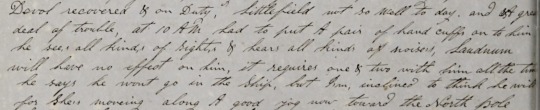 Devol recovered & on Duty, Littlefield not so well to day. and A great
deal of trouble at 10 AM had to put A pair of hand cuffs on to him
he sees all kinds of Sights & hears all kinds of noises, Laudnum
will have no effect on him, it requires one & two with him all the time
he says he wont go in the Ship, but I'm, inclined to think he will
for Shees moveing along A good jog now toward the North Pole